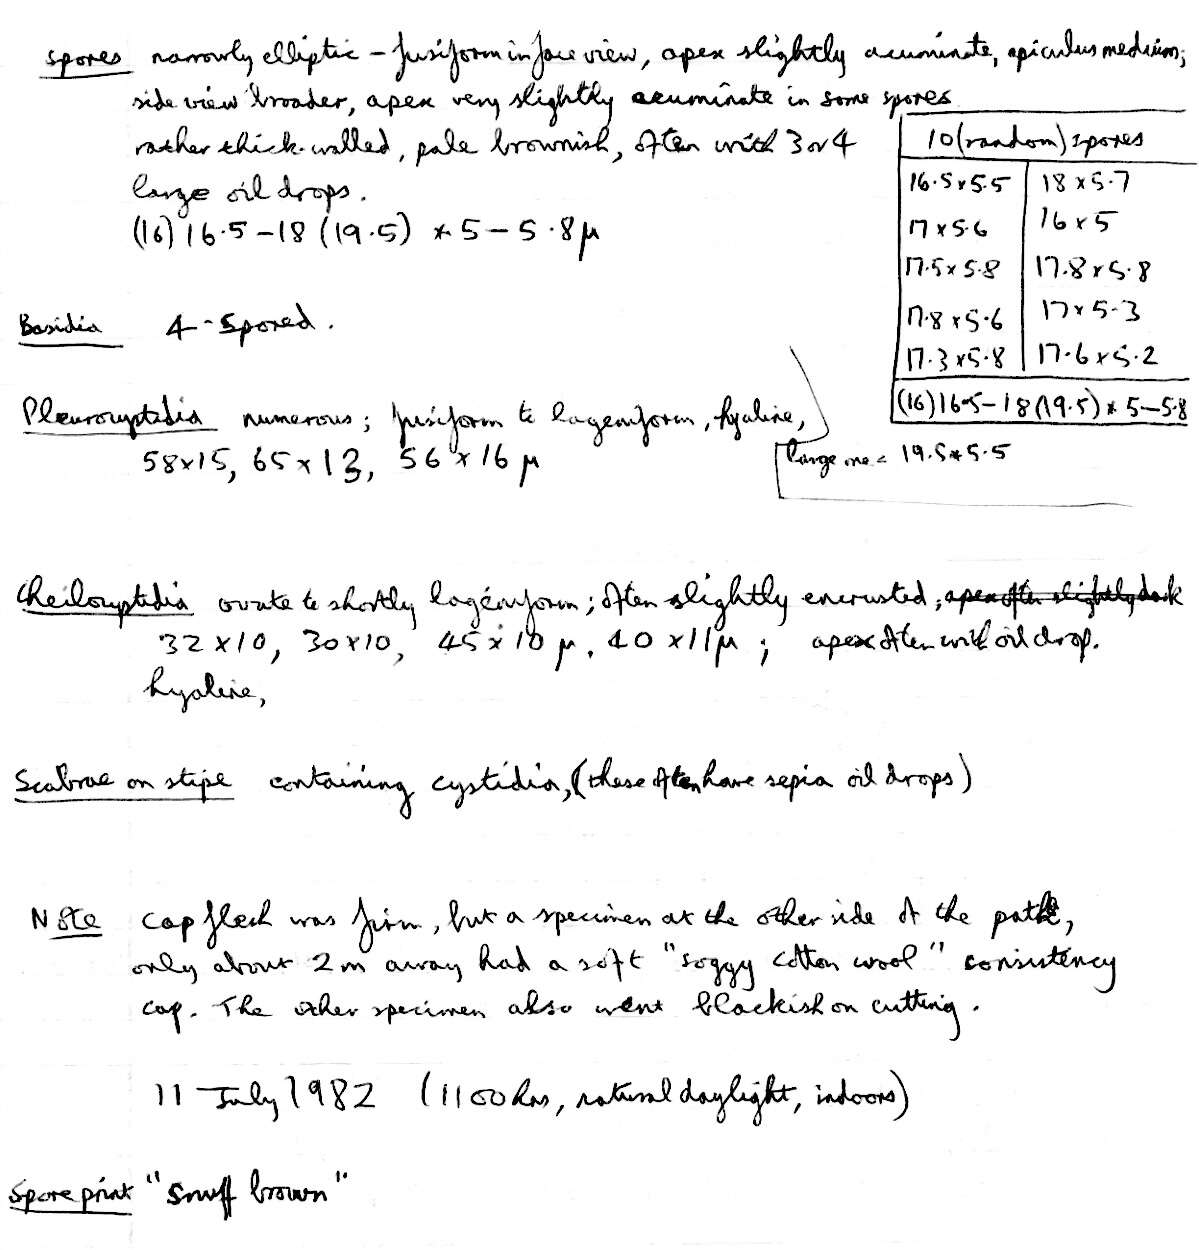 spores narrowly elliptic - fusiform in face view, apex slightly acuminate, apiculus medium;
side view broader, apex very slightly acuminate in some spores
rather thick-walled, pale brownish, often with 3 or 4
large oil drops.
(16) 16.5-18 (19.5) × 5-5.8 μ
10 (random) spores
16.5 x 5.5 18 x 5.7
17 x 5.6 16 x 5
17.5 x 5.8 17.8 x 5.8
17.8 x 5.6 17 x 5.3
17.3 x 5.8 17.6 x 5.2
(16) 16.5-18 (19.5) × 5-5.8
large one = 19.5 × 5.5
Basidia 4-spored.
Pleurocystidia numerous; fusiform to lageniform, hyaline,
58x15, 65x13, 56x16 μ
Cheilocystidia ovate to shortly lageniform; often slightly encrusted; apex often slightly dark
32x10, 30x10, 45x10 μ, 40x11μ; apex often with oil drop.
hyaline,
Scabrae on stipe containing cystidia, (these often have sepia oil drops)
Note cap flesh was firm, but a specimen at the other side of the path,
only about 2m away had a soft "soggy cotton wool" consistency
cap. The other specimen also went blackish on cutting.
11 July 1982 (1100 hrs, natural daylight, indoors)
Spore print "Snuff brown"